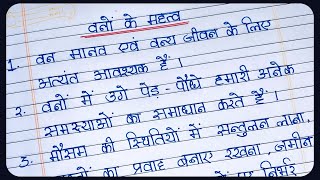 वनों के महत्व
1. वन मानव एवं वन्य जीवन के लिए
अत्यंत आवश्यक हैं ।
2. वनों में उगे पेड़ - पौधे हमारी अनेक
समस्याओं का समाधान करते हैं ।
3. मौसम की स्थितियों में सन्तुलन लाना,
का प्रवाह बनाए रखना, जमीन
पर निर्भर